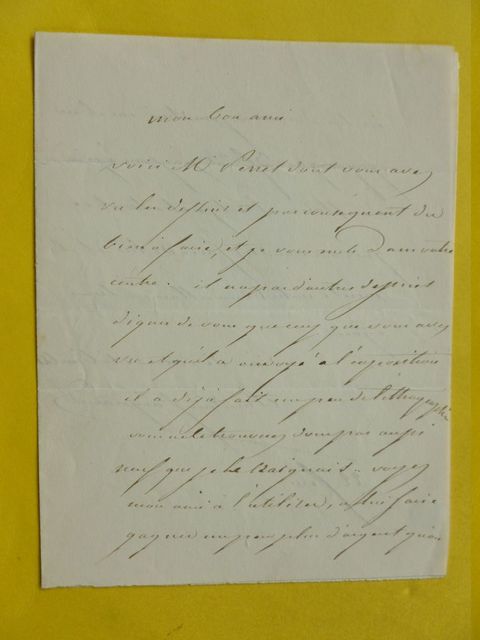 mon bon ami
voici M. Perret dont vous avez
vu les dessins et par conséquent du
bien à faire, et je vous dans votre
centre. il n'a pas d'autres dessins
digan de vous que ceux que vous avez
vu et qu'il a envoyé à l'exposition
il a déjà fait un peu de lithographie
vous ne le trouverez donc pas aussi
neuf que je le craignais .. voyez
mon ami à l'utiliser, a lui faire
gagner un peu plus d'argent qu'on